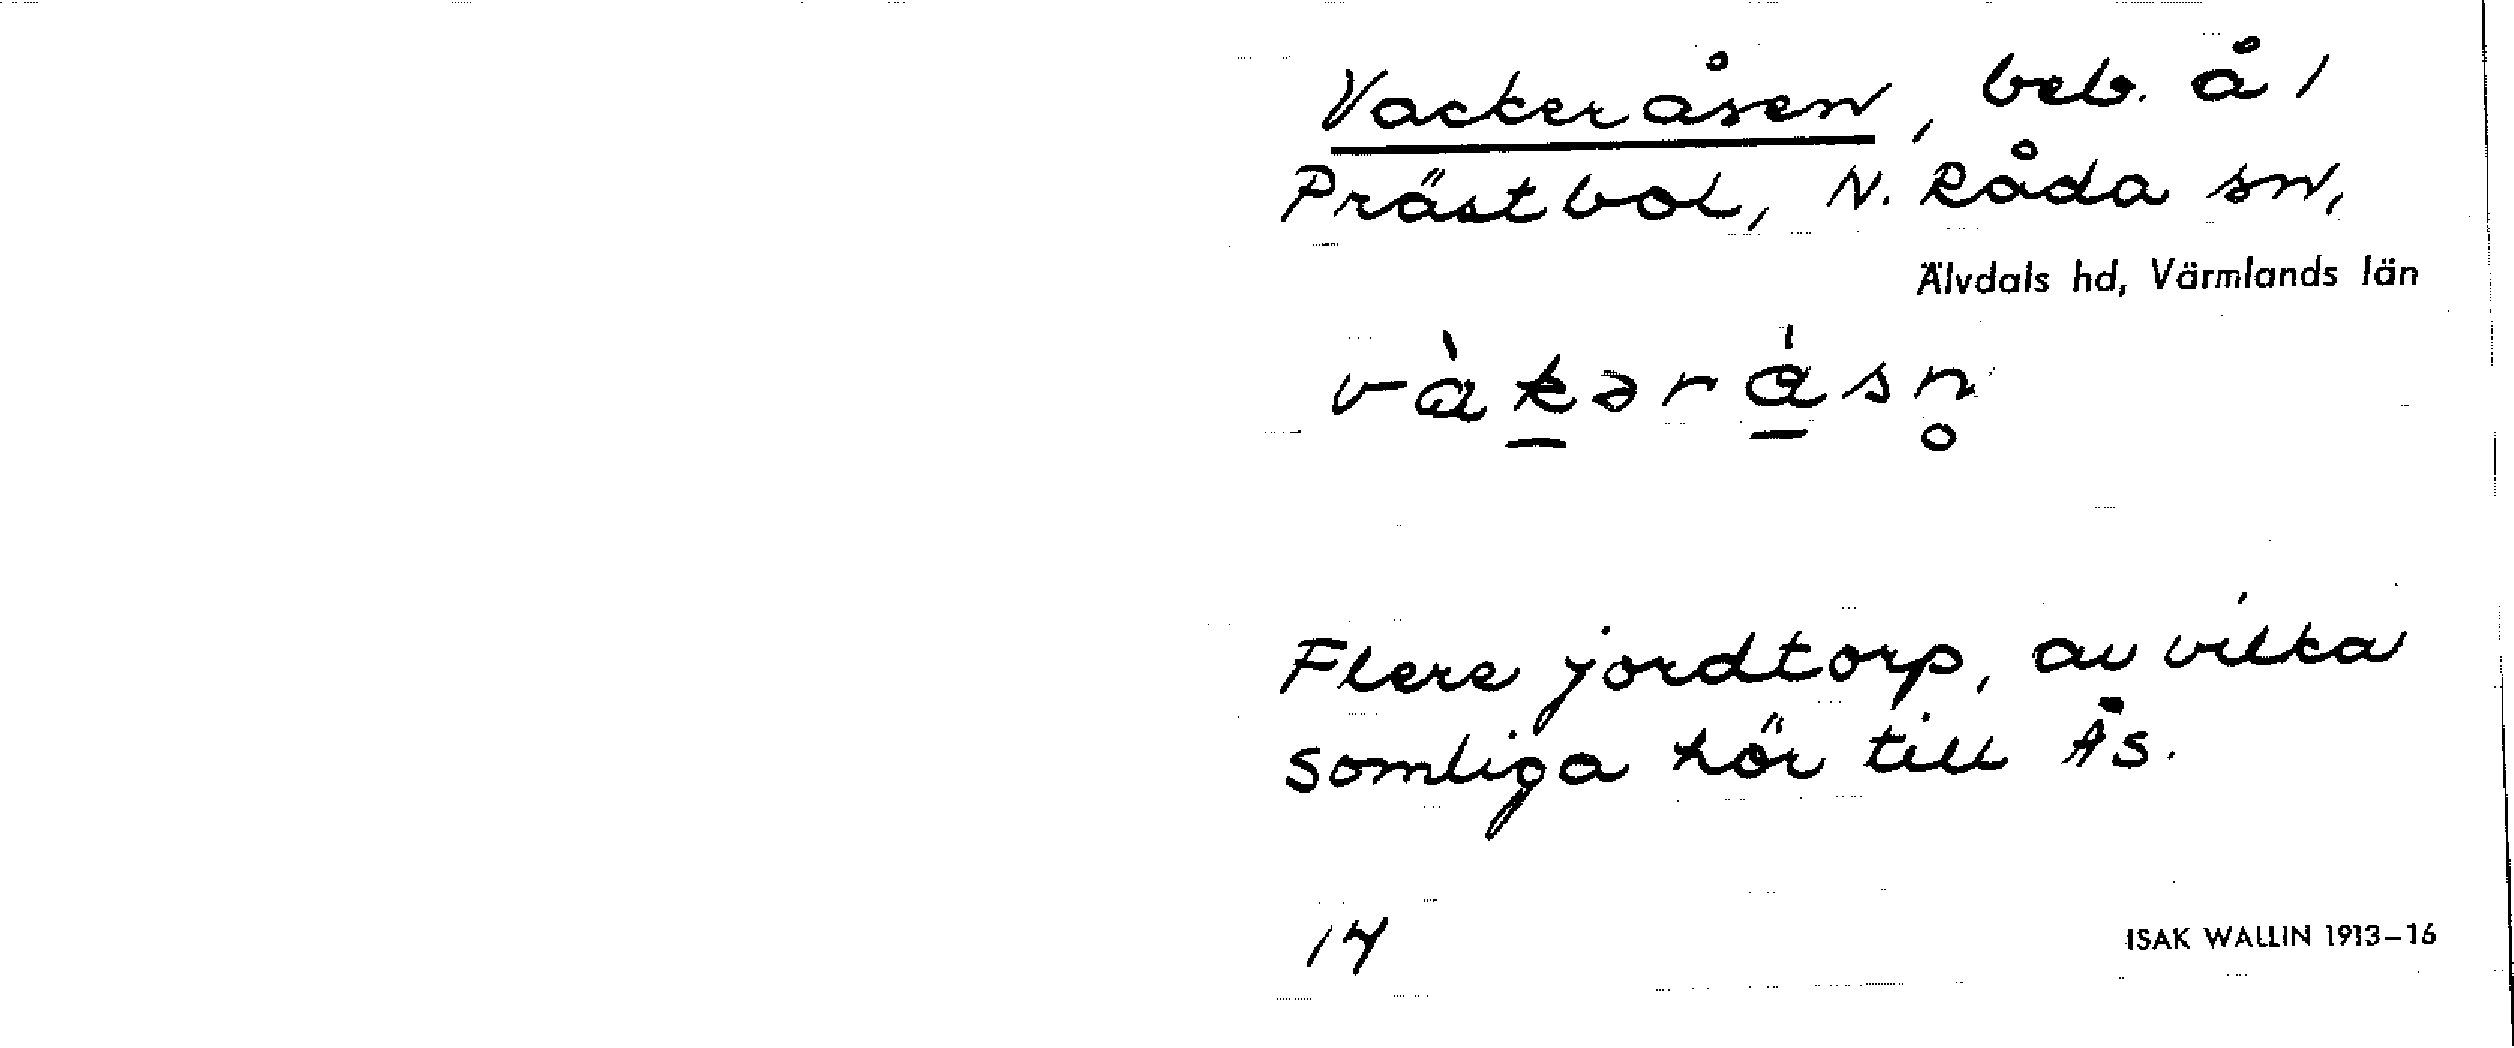 Vackeråsen, beb. å 1
Prästbol, N. Råda sn,
Älvdals hd, Värmlands län
vàk̲ərá̲sn̥
Flere jordtorp, av vilka
somliga hör till Ås.
14
ISAK WALLIN 1913–16